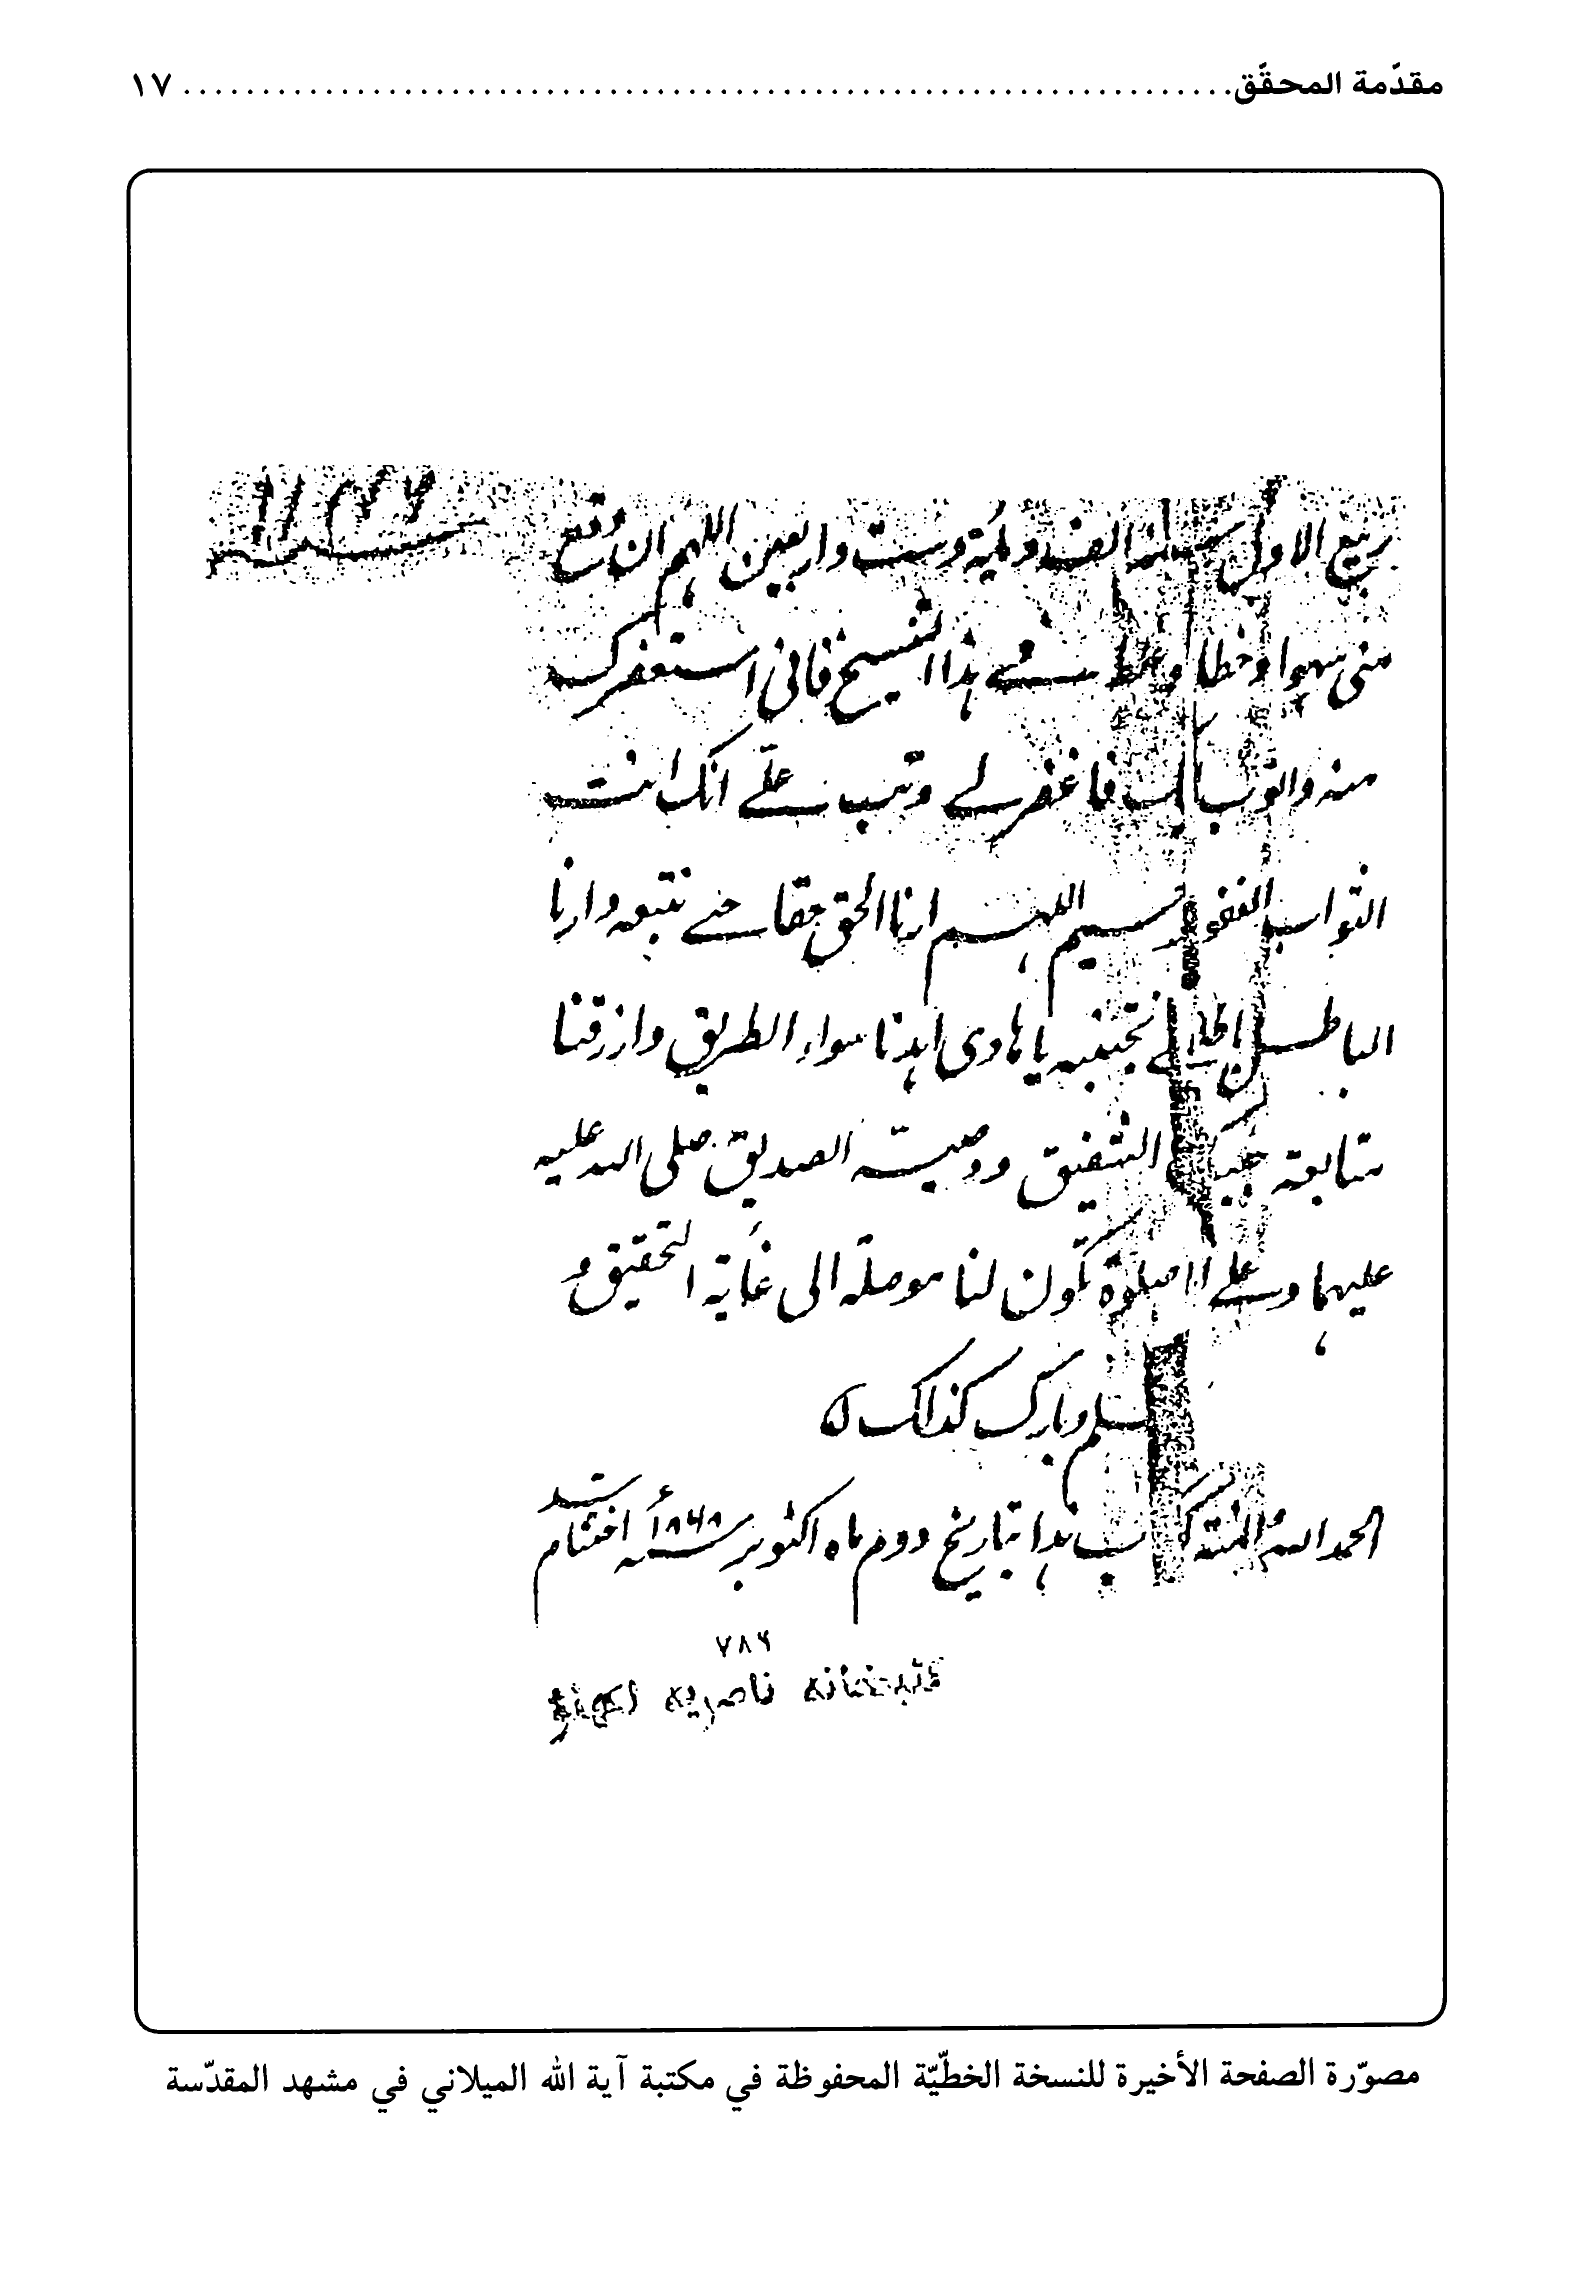 مقدّمة المحقّق ........................................ ١٧
ربيع الاول سنة الف و مية وست واربعين اللهم ان وقع
منى سهوا وخطا و غلط في هذا النسخ فانى استغفرك
منه واتوب اليك فاغفر لى وتب على انك انت
التواب الغفور الرحيم اللهم ارنا الحق حقا حتى نتبعه وارنا
الباطل باطلا حتى نجتنبه يا هادى اهدنا سواء الطريق وارزقنا
متابعة حبيبك الشفيق ووصيته الصديق صلى الله عليه
عليهما وعلى صلوة تكون لنا موصلة الى غاية التحقيق و
سلم وبارك كذالك
الحمد لله والمنة كتاب هذا بتاريخ دوم ماه اكتوبر سنه ١٨٦٨ء اختتام شد
٧٨٦
كتبخانه ناصريه لكهنؤ
مصوّرة الصفحة الأخيرة للنسخة الخطيّة المحفوظة في مكتبة آية الله الميلاني في مشهد المقدّسة